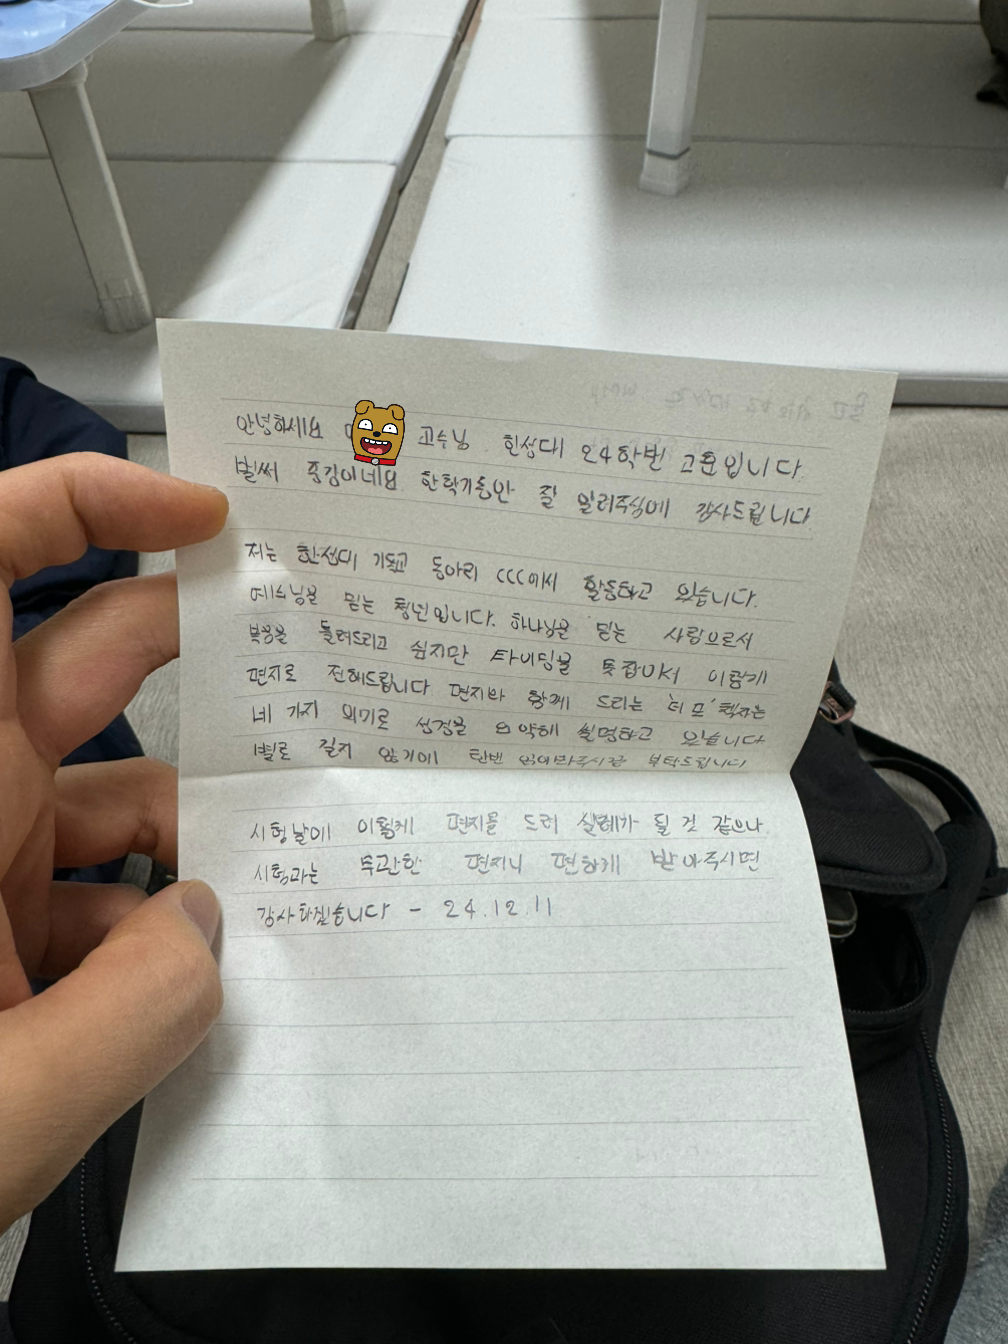 안녕하세요 교수님 한성대 24학번 고훈입니다.
벌써 종강이네요 한학기동안 잘 알려주심에 감사드립니다
저는 한성대 기독교 동아리 CCC에서 활동하고 있습니다.
예수님을 믿는 청년입니다. 하나님을 믿는 사람으로서
복음을 들려드리고 싶지만 타이밍을 못잡아서 이렇게
편지로 전해드립니다 편지와 함께 드리는 '더 포' 책자는
네 가지 의미로 성경을 요약해 설명하고 있습니다
별로 길지 않기에 한번 읽어봐주시길 부탁드립니다
시험날에 이렇게 편지를 드려 실례가 될 것 같으나
시험과는 무관한 편지니 편하게 받아주시면
감사하겠습니다 - 24.12.11